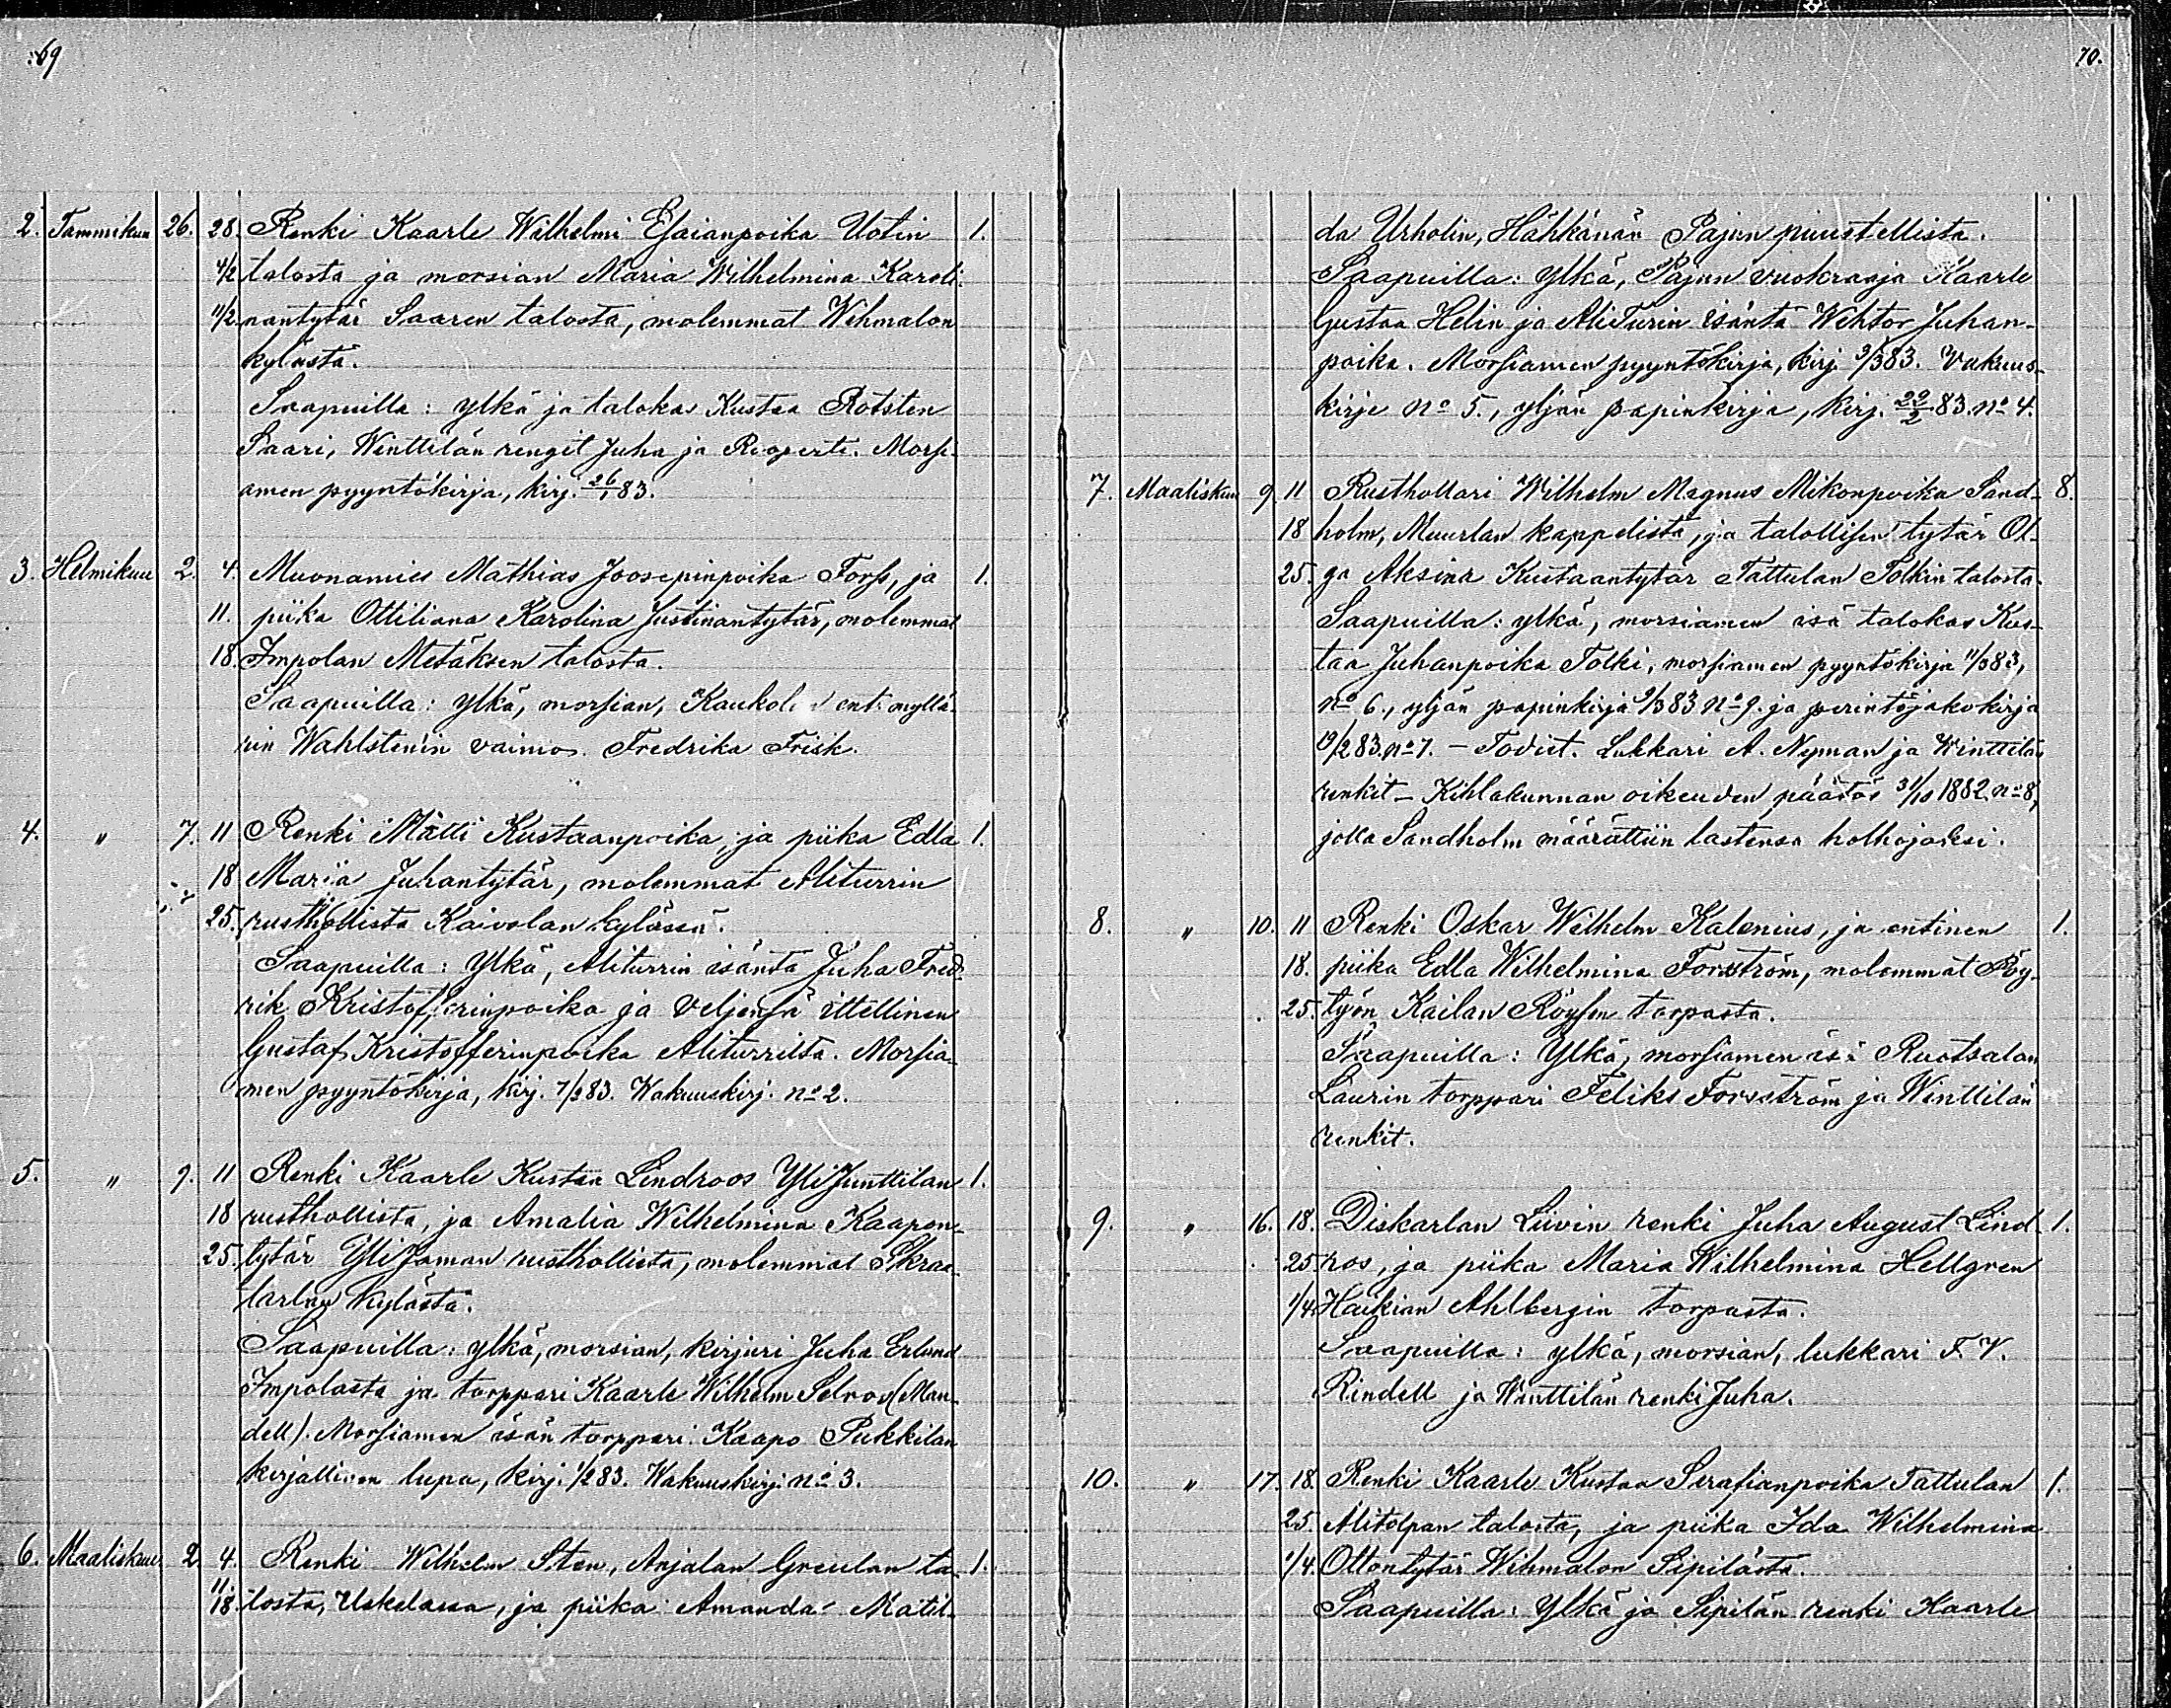 69
2. Tammikuu 26. 28. Renki Kaarle Wilhelmi Esaianpoika Uotin 1.
4/2 talosta ja morsian Maria Wilhelmina Karoli-
11/2 nantytär Saaren talosta, molemmat Wihmalon
kylästä.
Saapuilla: ylkä ja talokas Kustaa Rotsten
Saari, Winttilän rengit Juha ja Rooperti. Morsi-
amen pyyntökirja, kirj. 26/1 83.
3. Helmikuu 2. 4. Muonamies Mathias Joosepinpoika Forss, ja 1.
11. piika Ottiliana Karolina Justinantytär, molemmat
18. Impolan Metäksen talosta.
Saapuilla: ylkä, morsian, Kaukolan ent. myllä-
rin Wahlsten'in vaimo Fredrika Frisk.
4. " 7. 11 Renki Matti Kustaanpoika, ja piika Edla 1.
18 Maria Juhantytär, molemmat Aliturrin
25. rusthollista Kaivolan kylässä.
Saapuilla: Ylkä, Aliturrin isäntä Juha Fred-
rik Kristofferinpoika ja veljensä ittellinen
Gustaf Kristofferinpoika Aliturrilta. Morsia-
men pyyntökirja, kirj. 7/2 83. Wakuuskirj. No 2.
5. " 9. 11 Renki Kaarle Kustaa Lindroos YliJunttilan 1.
18 rusthollista, ja Amalia Wilhelmina Kaapon-
25. tytär YliJaman rusthollista, molemmat Skraa-
tarlan kylästä.
Saapuilla: ylkä, morsian, kirjuri Juha Erlund
Impolasta ja torppari Kaarle Wilhelm Selroos (Man-
dell). Morsiamen isän torppari Kaapo Pukkilan
kirjallinen lupa, kirj. 1/2 83. Wakuuskirj. No 3.
6. Maaliskuu 2. 4. Renki Wilhelm Sten, Anjalan Greulan ta- 1.
11/18. losta, Uskelassa, ja piika Amanda Matil-
70.
da Urholin, Hähkänän Pajun puustellista.
Saapuilla: Ylkä, Pajun vuokraaja Kaarle
Gustaa Helin ja AliTurin isäntä Wihtor Juhan-
poika. Morsiamen pyyntökirja, kirj. 2/3 83. Vakuus-
kirje No 5., yljän papinkirja, kirj. 22/2 83. No 4.
7. Maaliskuu 9. 11 Rusthollari Wilhelm Magnus Mikonpoika Sand- 8.
18 holm, Muurlan kappelista, ja talollisen tytär Ol-
25. ga Aksina Kustaantytär Tattulan Tolkin talosta.
Saapuilla: ylkä, morsiamen isä talokas Kus-
taa Juhanpoika Tolki, morsiamen pyyntökirja 11/3 83,
No 6., yljän papinkirja 9/3 83 No 9. ja perintöjakokirja
19/2 83. No 7. – Todist. Lukkari A. Nyman ja Winttilän
renkit – Kihlakunnan oikeuden päätös 31/10 1882. No 8,
jolla Sandholm määrättiin lastensa holhojaksi.
8. " 10. 11 Renki Oskar Wilhelm Kalenius, ja entinen 1.
18. piika Edla Wilhelmina Forsström, molemmat Pöy-
25. työn Kailan Röyssen torpasta.
Saapuilla: Ylkä, morsiamen isä Ruotsalan
Laurin torppari Feliks Forsström ja Winttilän
renkit.
9. " 16. 18. Diskarlan Liivin renki Juha August Lind- 1.
25. ros, ja piika Maria Wilhelmina Hellgren
1/4. Haikian Ahlbergin torpasta.
Saapuilla: ylkä, morsian, lukkari F. V.
Rindell ja Winttilän renki Juha.
10. " 17. 18. Renki Kaarle Kustaa Serafianpoika Tattulan 1.
25. Alitolpan talosta, ja piika Ida Wilhelmina
1/4. Ottontytär Wihmalon Sipilästä.
Saapuilla: Ylkä ja Sipilän renki Kaarle